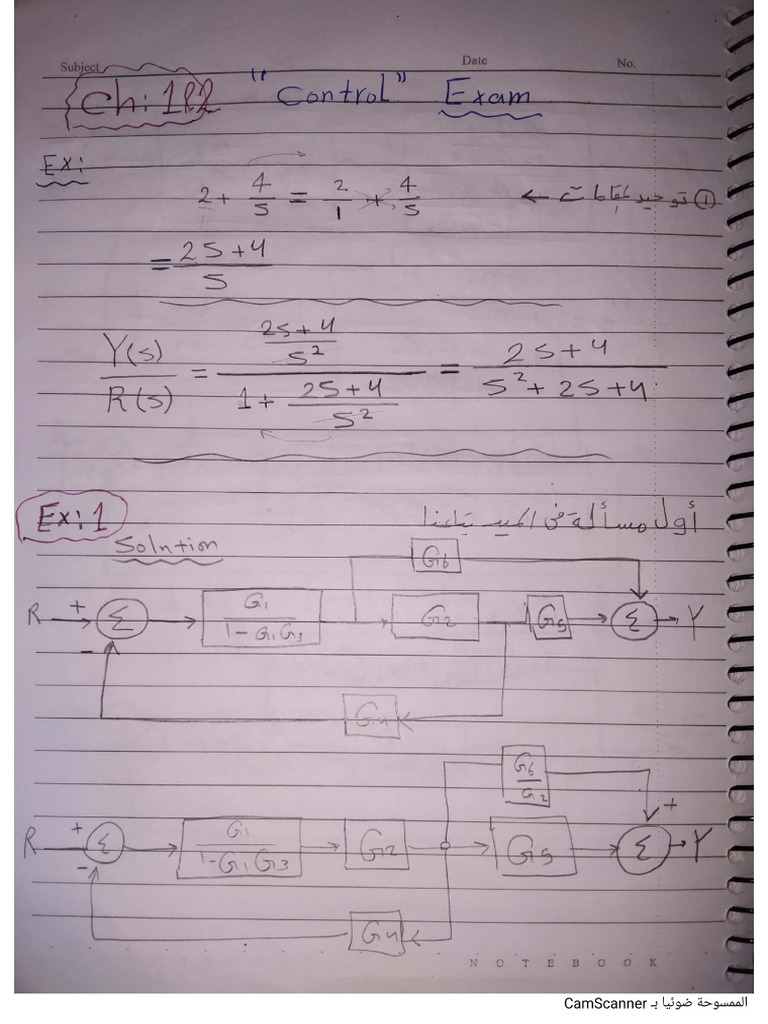 Subject Date No.
Ch: 1&2 "Control" Exam
Ex:
2 + 4/s = 2/1 + 4/s ← توحيد مقامات ①
= 2s+4 / s
Y(s)/R(s) = (2s+4 / s²) / (1 + 2s+4 / s²) = 2s+4 / s²+2s+4
Ex: 1 أول مسألة في الميد بتاعنا
Solntion
G6
R + Σ G1 / 1-G1G3 G2 G5 Σ Y
-
G4
G6 / G2
+
R + Σ G1 / 1-G1G3 G2 G5 Σ Y
-
G4
NOTEBOOK
الممسوحة ضوئيا بـ CamScanner